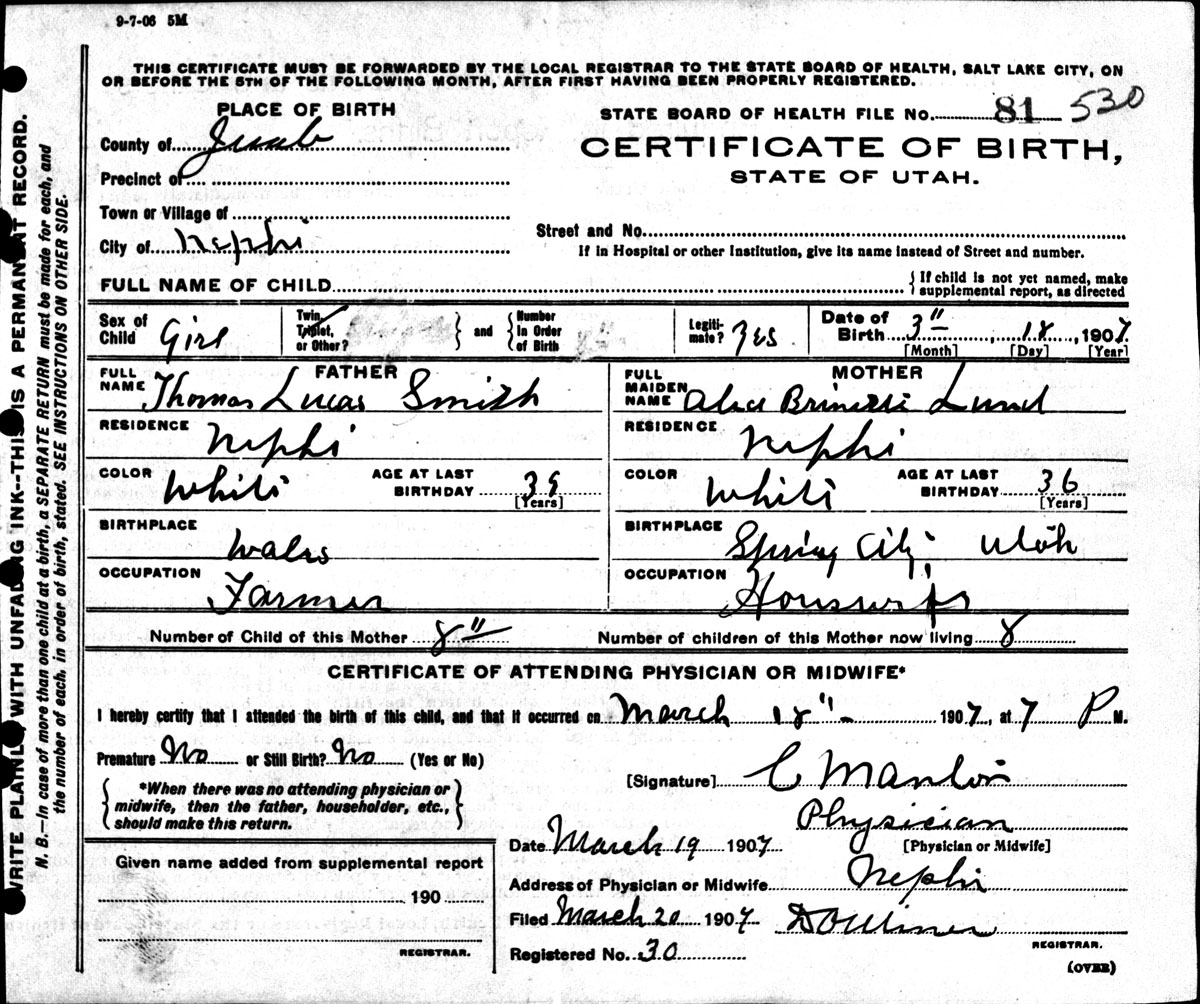 9-7-06 5M
THIS CERTIFICATE MUST BE FORWARDED BY THE LOCAL REGISTRAR TO THE STATE BOARD OF HEALTH, SALT LAKE CITY, ON
OR BEFORE THE 5TH OF THE FOLLOWING MONTH, AFTER FIRST HAVING BEEN PROPERLY REGISTERED.
PLACE OF BIRTH
County of Juab
Precinct of
Town or Village of
City of Nephi
STATE BOARD OF HEALTH FILE NO. 81 530
CERTIFICATE OF BIRTH,
STATE OF UTAH.
Street and No.
If in Hospital or other Institution, give its name instead of Street and number.
FULL NAME OF CHILD
If child is not yet named, make
supplemental report, as directed
Sex of Child Girl
Twin,
Triplet,
or Other?
and
Number
In Order
of Birth
Legiti-
mate? Yes
Date of
Birth 3" 18 1907
[Month] [Day] [Year]
FATHER
FULL NAME Thomas Lucas Smith
RESIDENCE Nephi
COLOR White
AGE AT LAST BIRTHDAY 39
[Years]
BIRTHPLACE Wales
OCCUPATION Farmer
MOTHER
FULL MAIDEN NAME Lund
RESIDENCE Nephi
COLOR White
AGE AT LAST BIRTHDAY 36
[Years]
BIRTHPLACE Spring City, Utah
OCCUPATION Housewife
Number of Child of this Mother 8" Number of children of this Mother now living 8
CERTIFICATE OF ATTENDING PHYSICIAN OR MIDWIFE*
I hereby certify that I attended the birth of this child, and that it occurred on March 18" 1907, at 7 P M.
Premature No or Still Birth? No (Yes or No)
*When there was no attending physician or
midwife, then the father, householder, etc.,
should make this return.
[Signature] C
Physician
[Physician or Midwife]
Date March 19 1907
Address of Physician or Midwife Nephi
Filed March 20 1907
REGISTRAR.
Registered No. 30
(OVER)
Given name added from supplemental report
190
REGISTRAR.
WRITE PLAINLY WITH UNFADING INK--THIS IS A PERMANENT RECORD.
N. B.--In case of more than one child at a birth, a SEPARATE RETURN must be made for each, and
the number of each, in order of birth, stated. SEE INSTRUCTIONS ON OTHER SIDE.